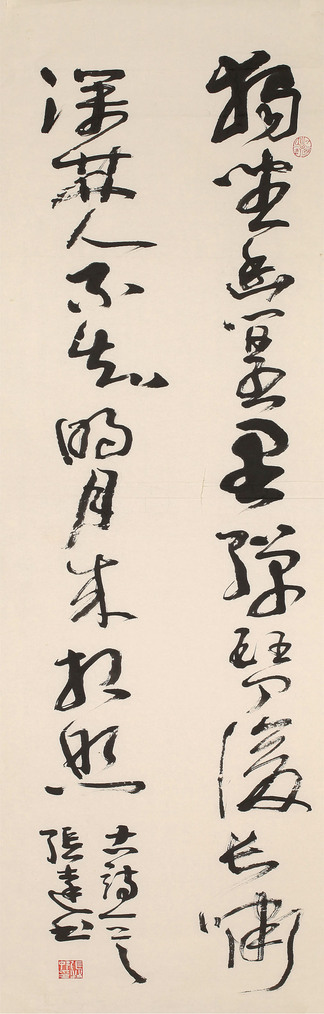 獨坐幽篁里彈琴復長嘯
深林人不知明月來相照
古詩
張達書